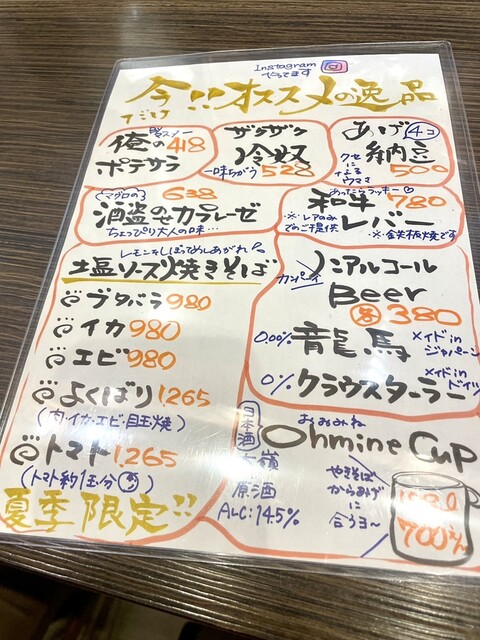 Instagram
やってます
今!!オススメの逸品
だけ
俺の418
ポテサラ
ザクザク
冷奴
一味ちがう528
あげ(4コ)
納豆
クセになるウママ
500
(マグロの)
638
酒盗のせカプレーゼ
ちょっぴり大人の味…
あったらラッキー♡
和牛780
レバー
※レアのみでのご提供
※鉄板焼です
レモンをしぼってめしあがれ♪
塩ソース焼きそば
ブタバラ980
イカ980
エビ980
よくばり1,265
(肉・イカ・エビ・目玉焼)
トマト1,265
(トマト約1玉分)
夏季限定!!
カンパーイ
ノンアルコール
Beer
各380
0.00%龍馬
メイドinジャパーン
0%クラウスターラー
メイドinドイツ
おおみね
Ohmine Cup
日本酒
大嶺
原酒
ALC:14.5%
やきそば
からあげに
合うヨ〜
700